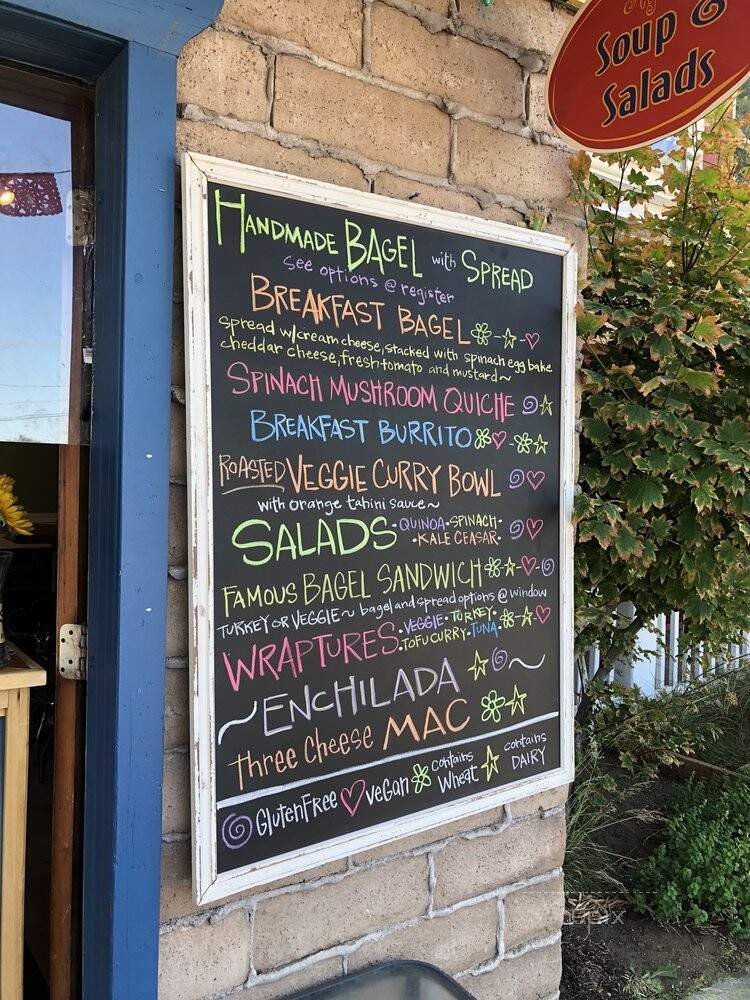 Soup &
Salads
HANDMADE BAGEL with SPREAD
See options @ register
BREAKFAST BAGEL
spread w/cream cheese, stacked with spinach egg bake
cheddar cheese, fresh tomato and mustard~
SPINACH MUSHROOM QUICHE
BREAKFAST BURRITO
ROASTED VEGGIE CURRY BOWL
with orange tahini sauce~
SALADS • QUINOA • SPINACH •
• KALE CEASAR •
FAMOUS BAGEL SANDWICH
TURKEY OR VEGGIE~ bagel and spread options @ window
WRAPTURES • VEGGIE • TURKEY •
• TOFU CURRY • TUNA
~ENCHILADA~
Three Cheese MAC
Gluten Free vegan contains Wheat contains DAIRY